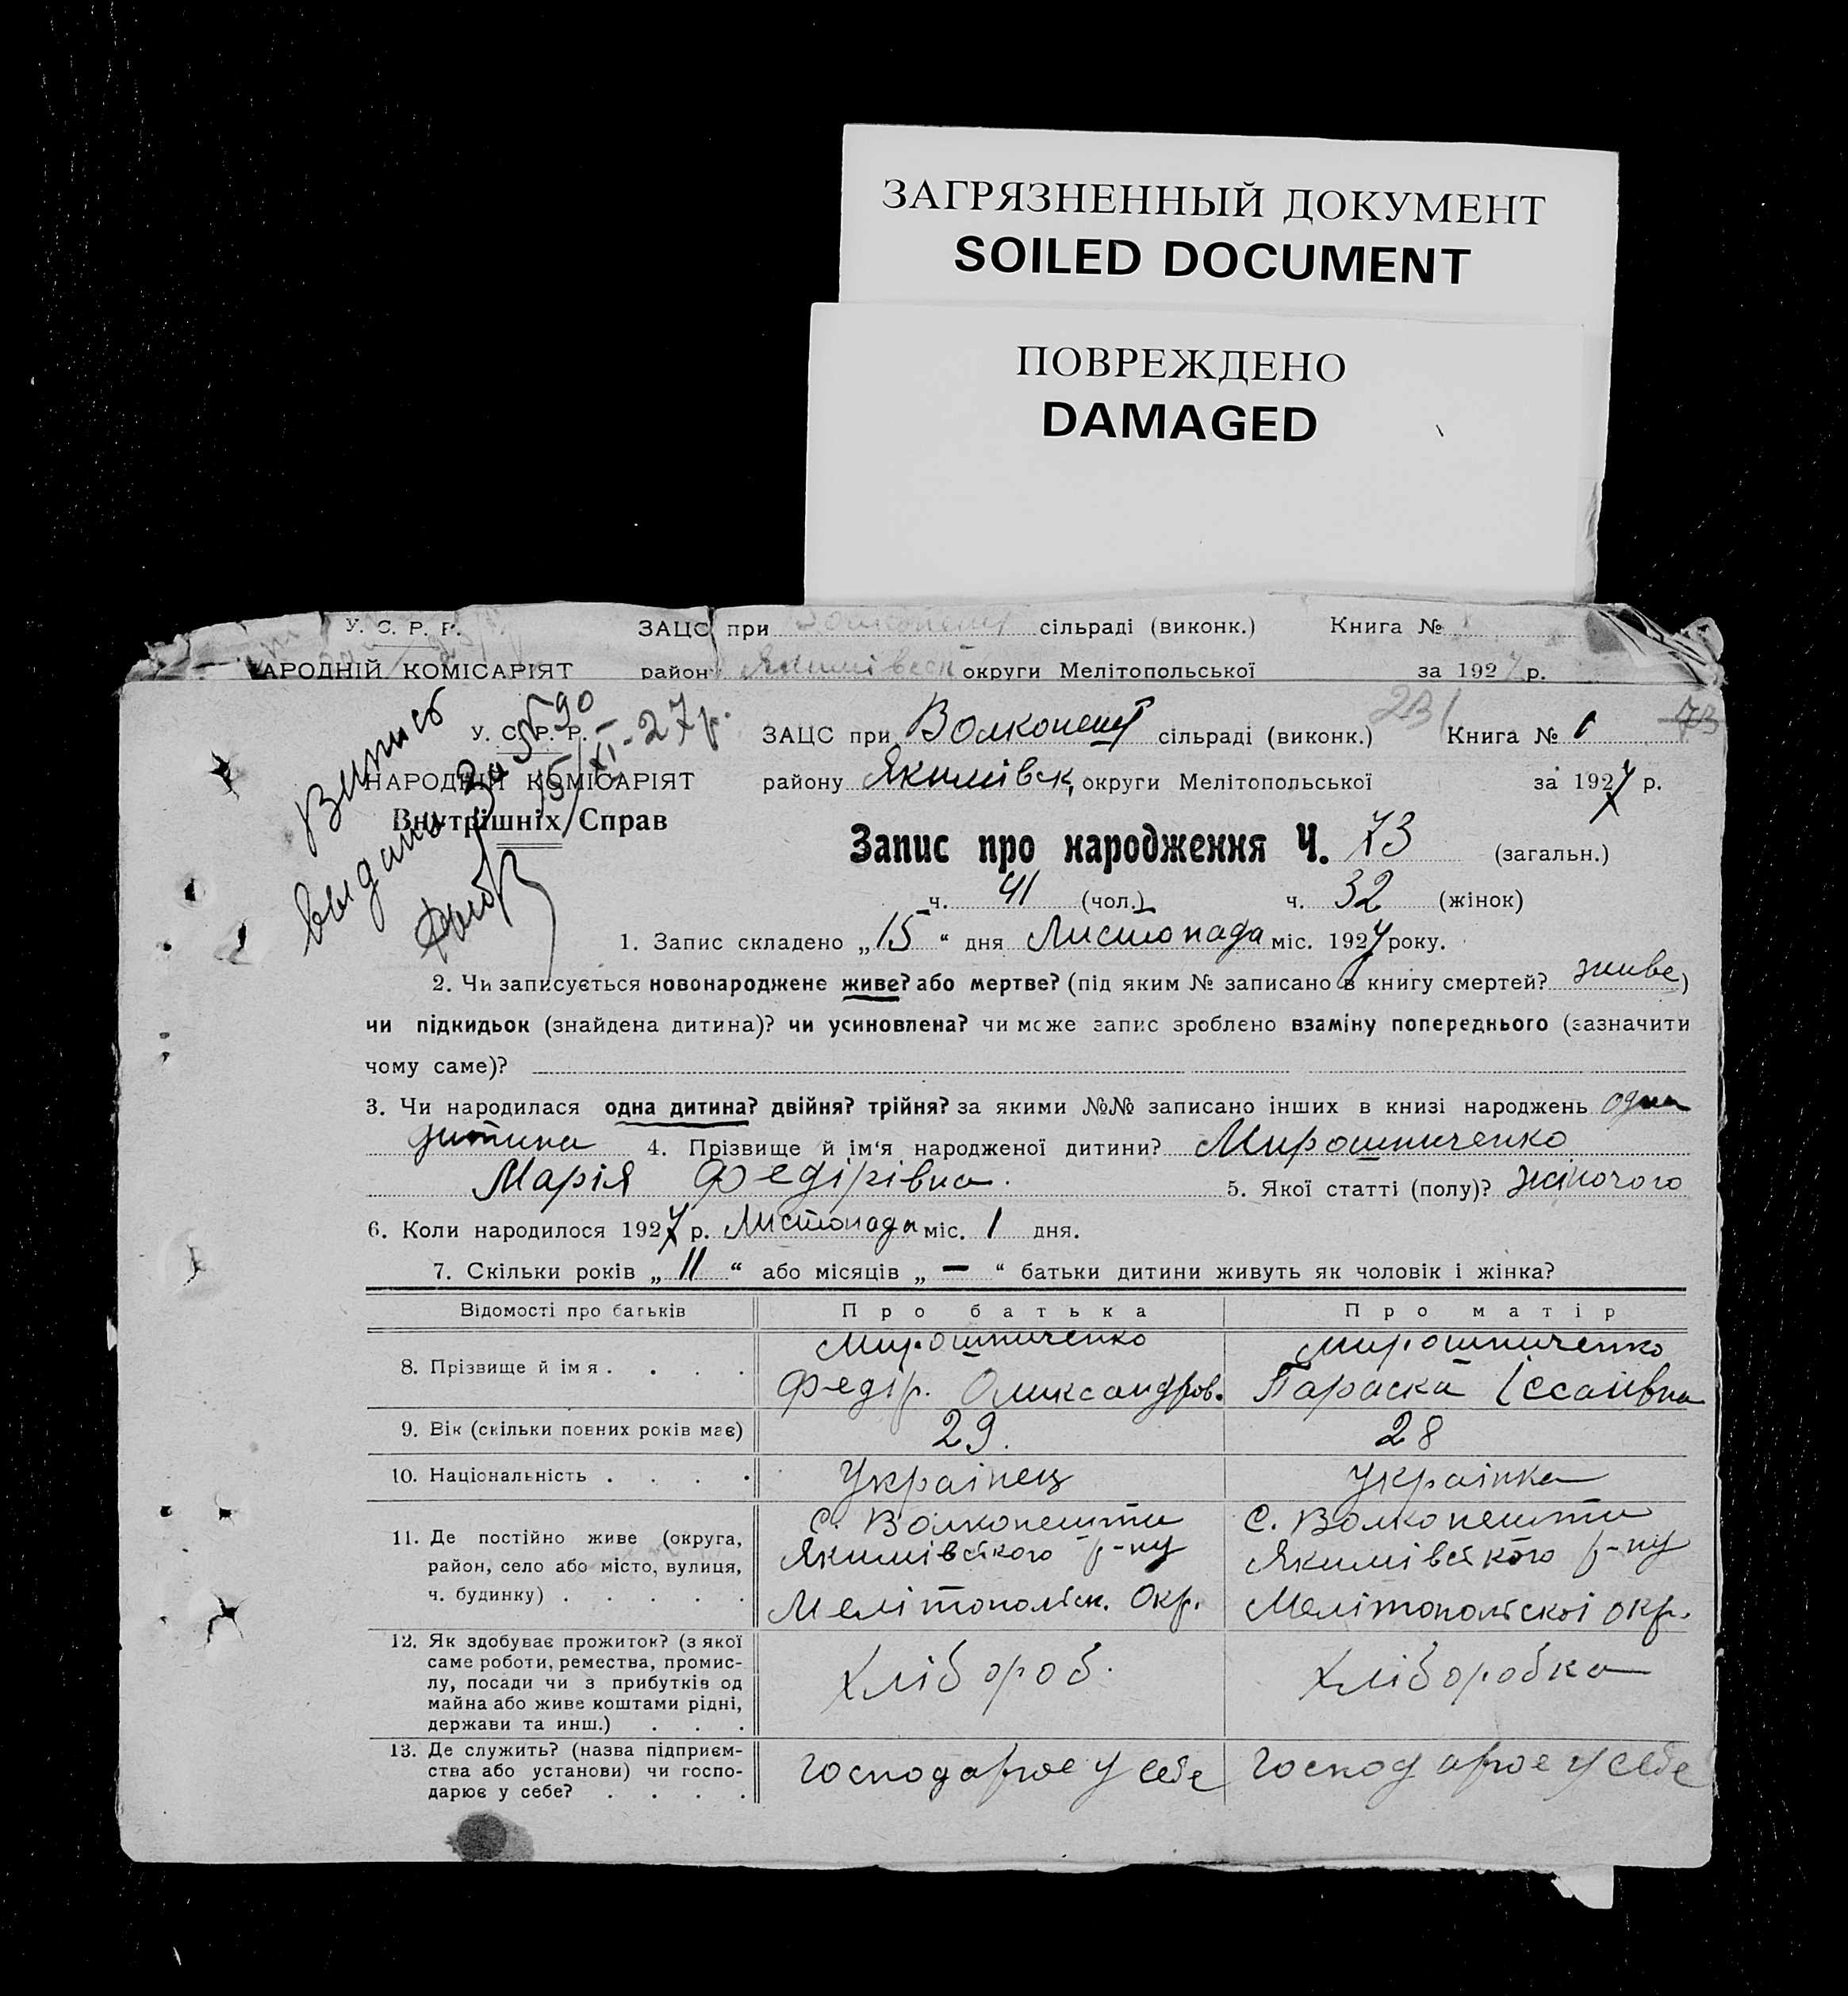 ЗАГРЯЗНЕННЫЙ ДОКУМЕНТ
SOILED DOCUMENT
ПОВРЕЖДЕНО
DAMAGED
У. С. Р. Р. ЗАЦС при сільраді (виконк.) Книга №
АРОДНІЙ КОМІСАРІЯТ район Якимівськ округи Мелітопольської за 1927 р.
231 73
У. С. Р. Р. ЗАЦС при Волконешт сільраді (виконк.) Книга № 1
НАРОДНІЙ КОМІСАРІЯТ району Якимівськ, округи Мелітопольської за 1927 р.
Внутрішніх Справ
Витись
выдана за № 90
15/XI-27р.
Запис про народження Ч. 73 (загальн.)
ч. 41 (чол.) ч. 32 (жінок)
1. Запис складено „15“ дня Листопада міс. 1927 року.
2. Чи записується новонароджене живе? або мертве? (під яким № записано в книгу смертей? живе)
чи підкидьок (знайдена дитина)? чи усиновлена? чи може запис зроблено взаміну попереднього (зазначити
чому саме)?
3. Чи народилася одна дитина? двійня? трійня? за якими №№ записано інших в книзі народжень одна
дитина 4. Прізвище й ім‘я народженої дитини? Мирошниченко
Марія Федірівна. 5. Якої статті (полу)? Жіночого
6. Коли народилося 1927 р. Листопада міс. 1 дня.
7. Скільки років „11“ або місяців „—“ батьки дитини живуть як чоловік і жінка?
Відомості про батьків Про батька Про матір
8. Прізвище й імя . . . . Мирошниченко Мирошниченко
Федір. Олександров. Параска Ісааівна
9. Вік (скільки повних років має) 29. 28
10. Національність . . . . Українец Українка
11. Де постійно живе (округа, с. Волконешти с. Волконешти
район, село або місто, вулиця, Якимівського р-ну Якимівського р-ну
ч. будинку) . . . . . Мелітопольськ. Окр. Мелітопольскоі окр.
12. Як здобуває прожиток? (з якої
саме роботи, ремества, промис-
лу, посади чи з прибутків од Хлібороб. Хліборобка
майна або живе коштами рідні,
держави та инш.) . . .
13. Де служить? (назва підприєм-
ства або установи) чи госпо- господарює у себе господарює у себе
дарює у себе? . . . .